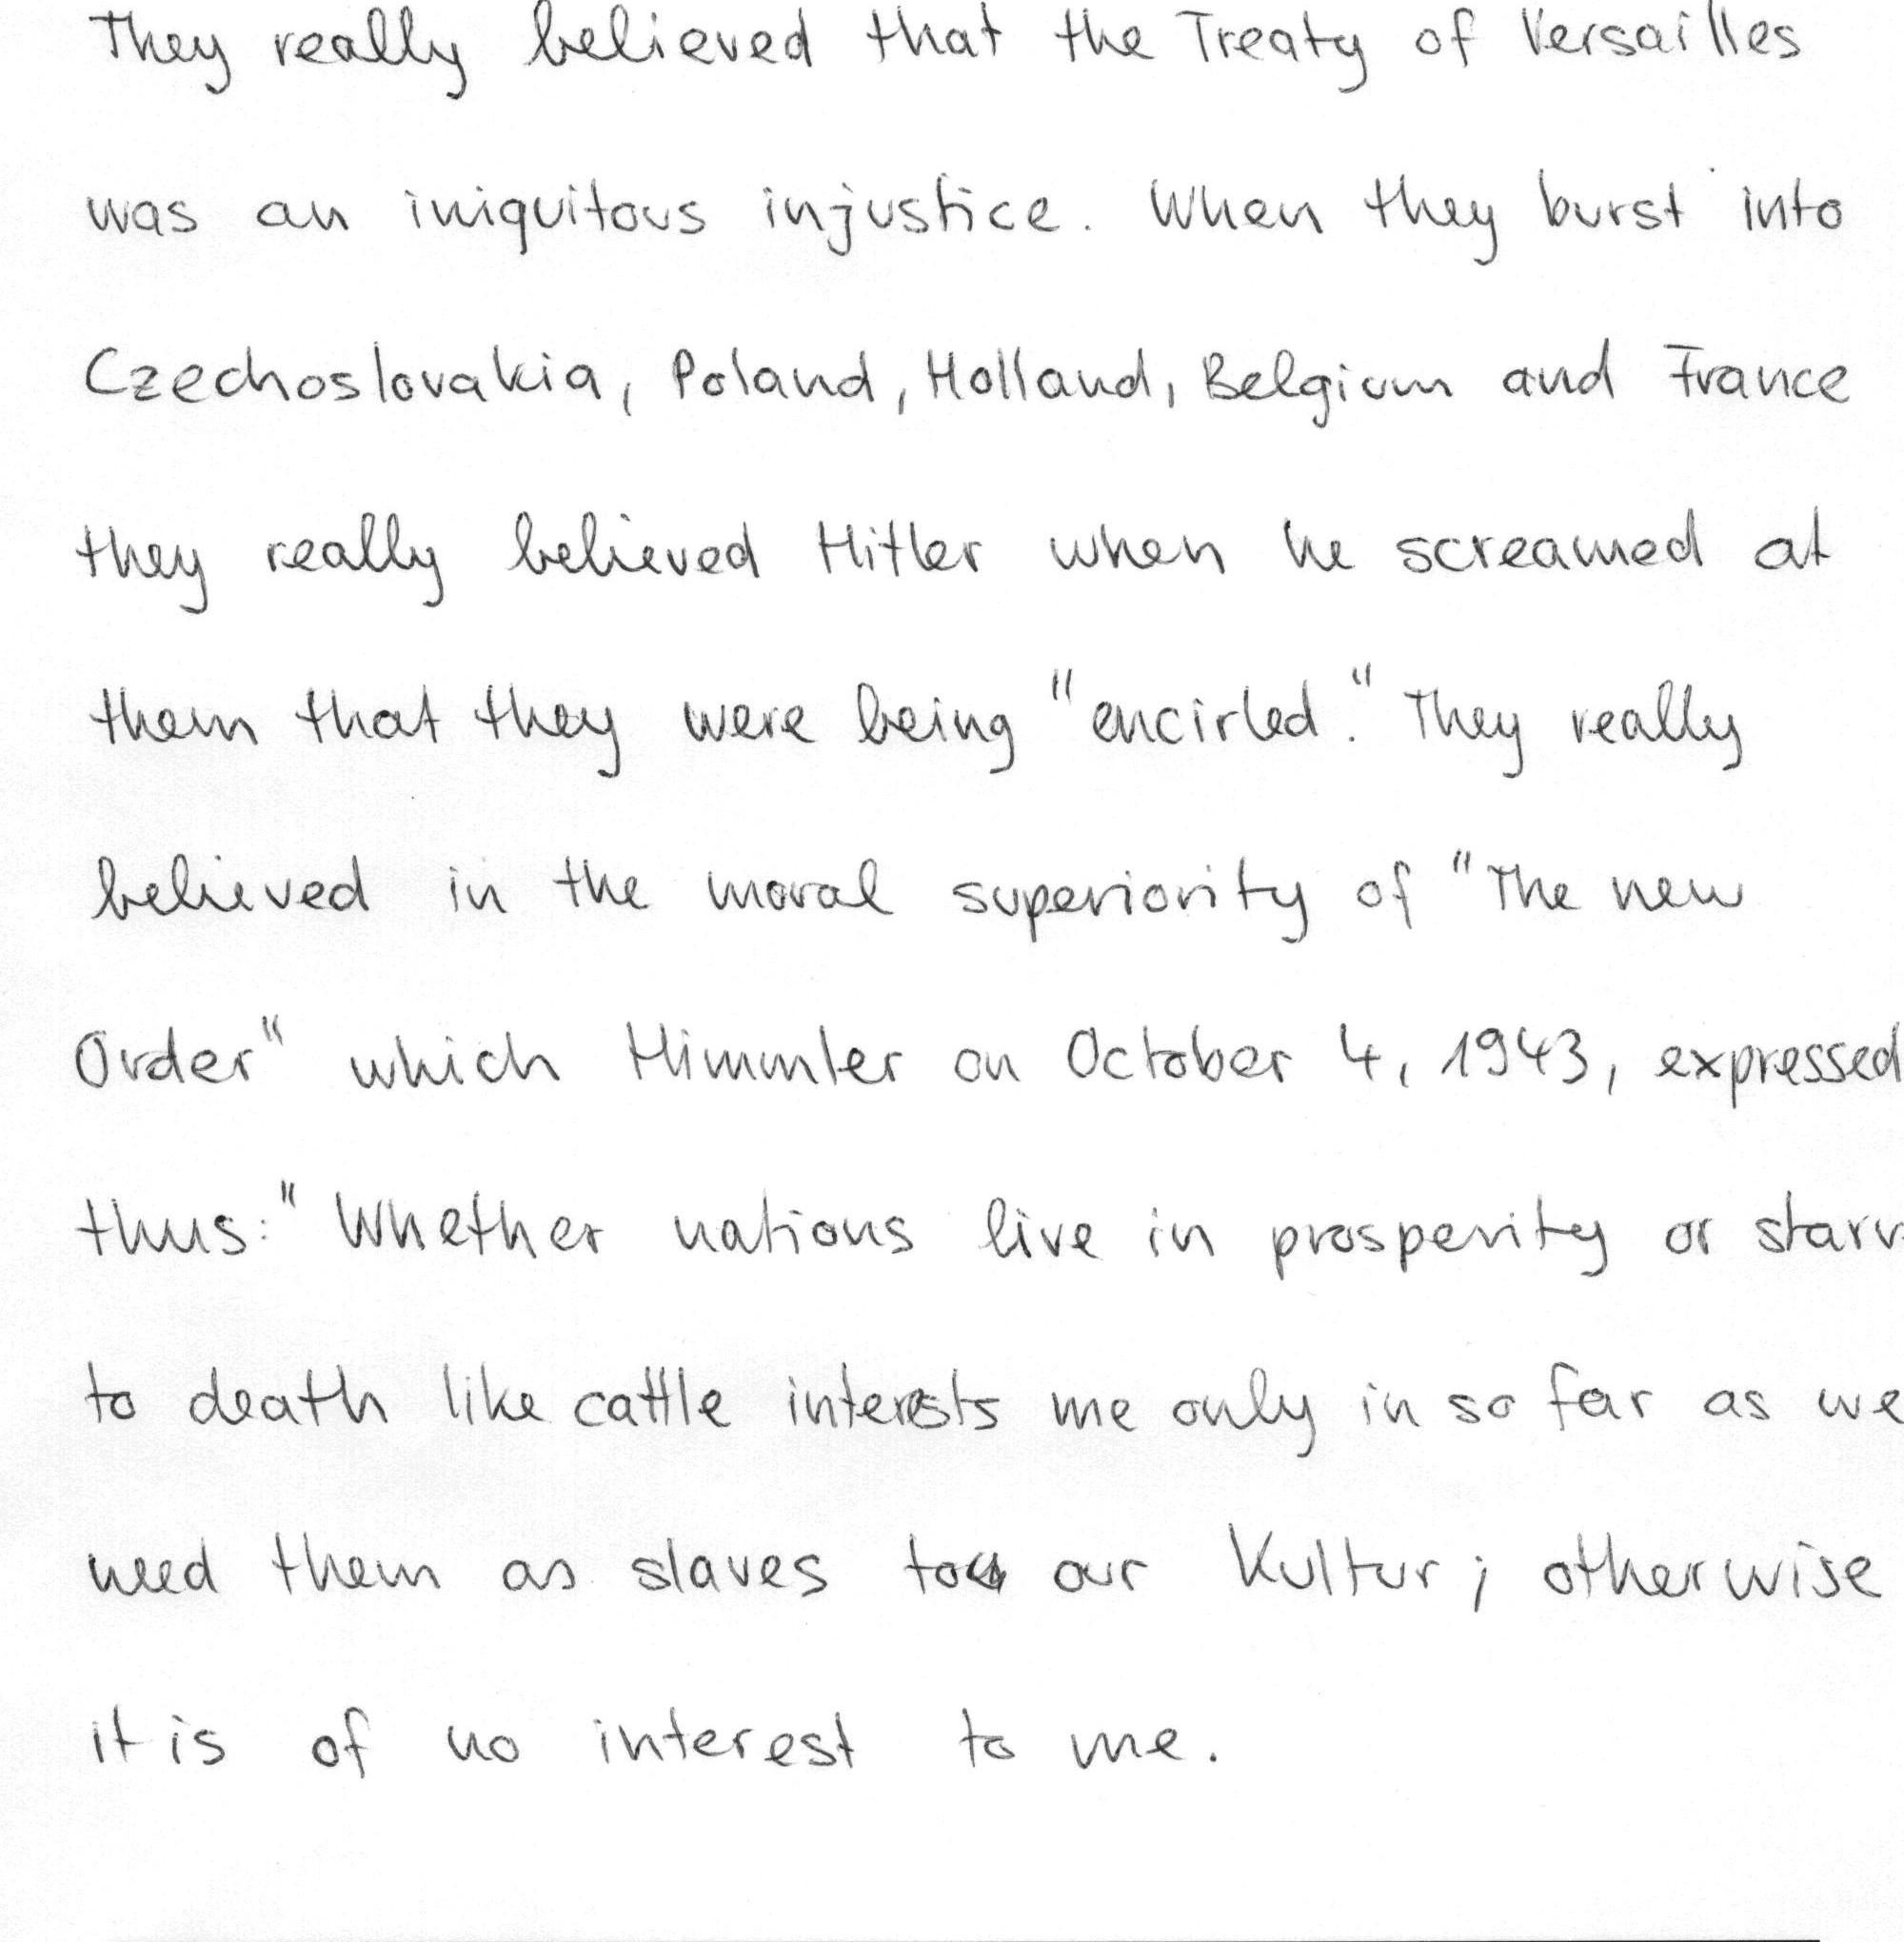 They really believed that the Treaty of Versailles
was an iniquitous injustice. When they burst into
Czechoslovakia, Poland, Holland, Belgium and France
they really believed Hitler when he screamed at
them that they were being "encirled." They really
believed in the moral superiority of "The new
Order" which Himmler on October 4, 1943, expressed
thus:" Whether nations live in prosperity or starv
to death like cattle interests me only in so far as we
need them as slaves to our Kultur; otherwise
it is of no interest to me.